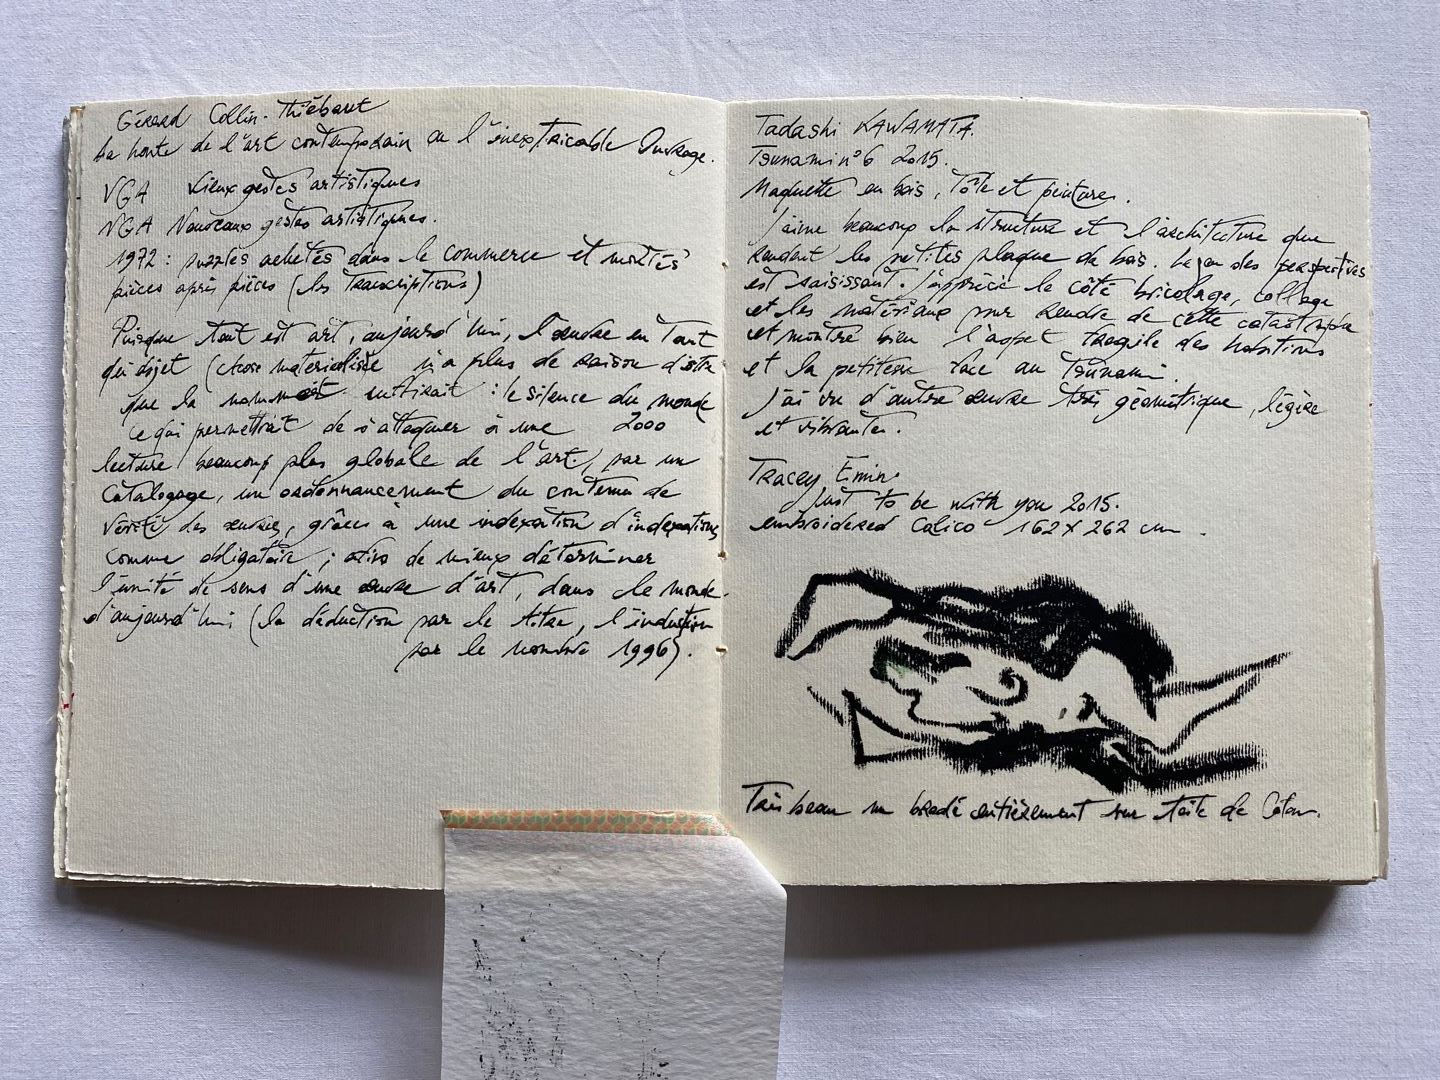 Gérard Collin-Thiébaut
La honte de l'art contemporain ou l'inextricable Ouvrage.
VGA Vieux gestes artistiques
NGA Nouveaux gestes artistiques.
1972 : puzzles achetés dans le commerce et montés
pièces après pièces (les Transcriptions)
Puisque tout est art, aujourd'hui, l'œuvre en tant
qu'objet (chose matérialisée n'a plus de raison d'être
que la nommer suffirait : le silence du monde
ce qui permettrait de s'attaquer à une 2000
lecture beaucoup plus globale de l'art, par un
catalogage, un ordonnancement du contenu de
vérité des œuvres, grâces à une indexation d'indexations
comme obligatoire ; afin de mieux déterminer
l'unité de sens d'une œuvre d'art, dans le monde
d'aujourd'hui (la déduction par le titre, l'induction
par le nombre 1996).
Tadashi KAWAMATA.
Tsunami n°6 2015.
Maquette en bois, tôle et peinture.
J'aime beaucoup la structure et l'architecture que
rendent les petites plaque de bois. Le des perspectives
est saisissant. J'apprécie le côté bricolage, collage
et les matériaux pour rendre de cette catastrophe
et montre bien l'aspet fragile des habitions
et la petitesse face au Tsunami.
J'ai vu d'autre œuvre très géométrique, légère
et vibrante.
Tracey Emin
Just to be with you 2015.
embroidered Calico 162 x 262 cm.
Très beau nu brodé entièrement sur toile de Coton.